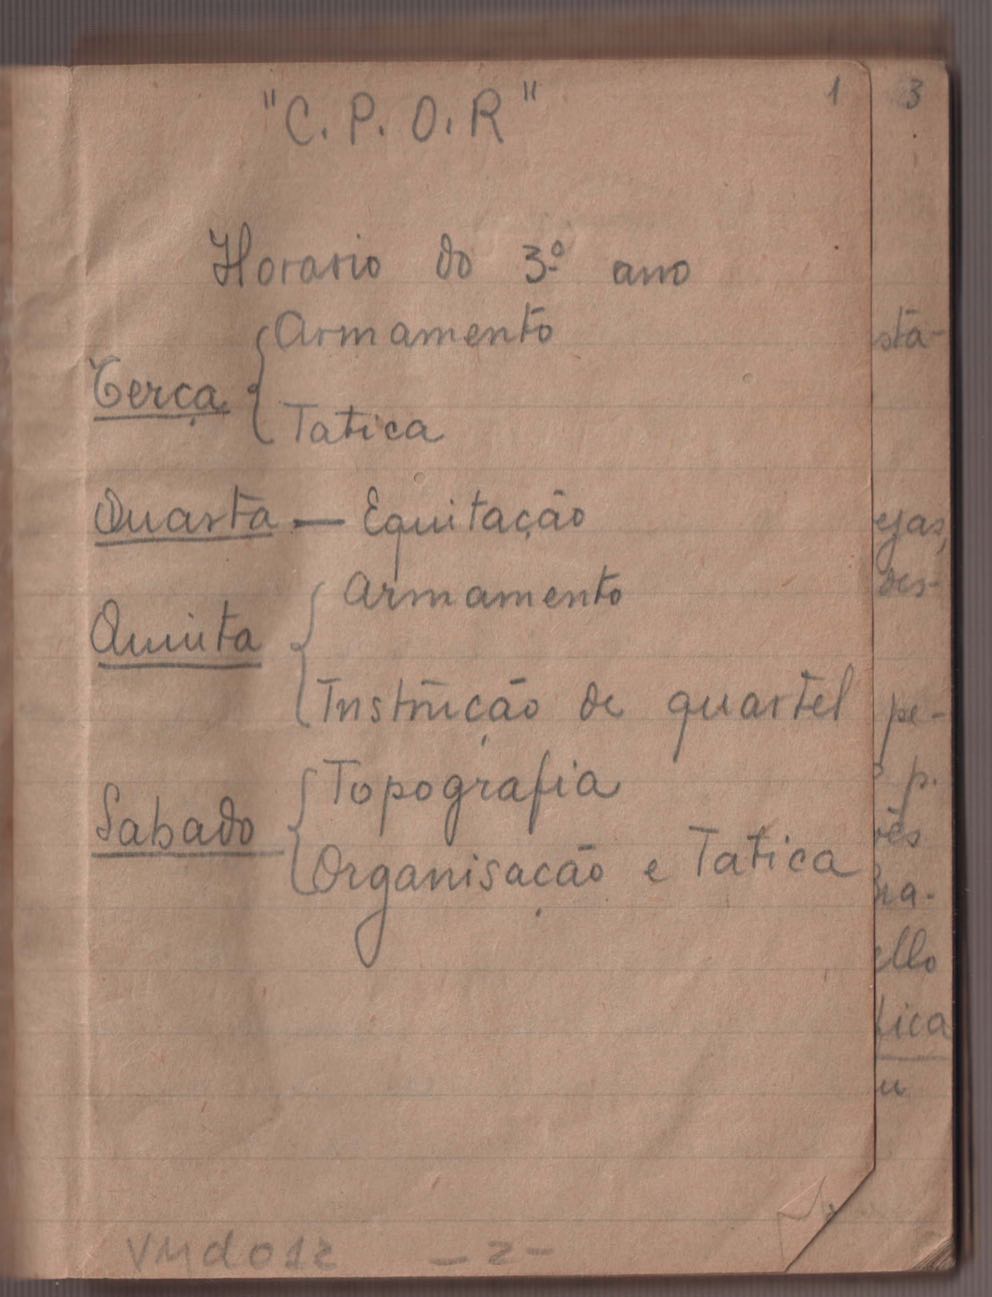 1 3
"C.P.O.R"
Horario do 3º ano
Armamento
Terça
Tatica
Quarta — Equitação
Armamento
Quinta
Instrução de quartel
Topografia
Sabado
Organisação e Tatica
stá-
ejas,
des-
pe-
p.
vês
Bra-
ello
fica
u
VMd012 -2-